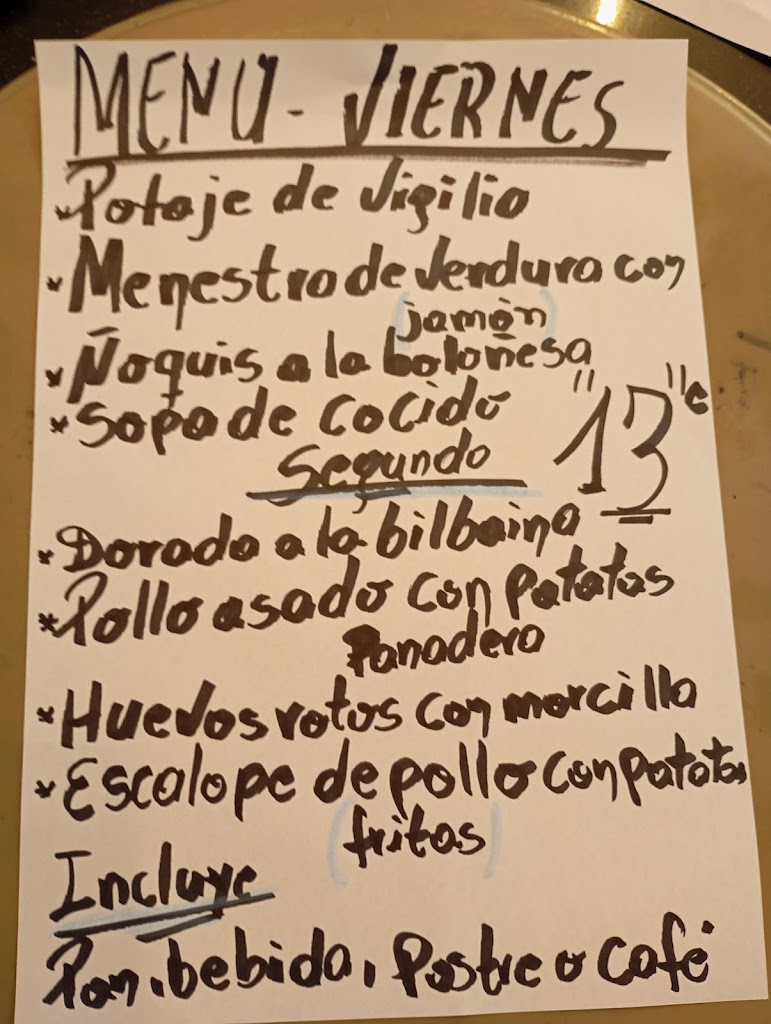 MENU - VIERNES
* Potaje de Vigilia
* Menestra de Verdura con
(jamón)
* Ñoquis a la boloñesa
* Sopa de cocido
"13"€
Segundo
* Dorada a la bilbaina
* Pollo asado con patatas
Panadera
* Huevos rotos con morcilla
* Escalope de pollo con patatas
(fritas)
Incluye
Pan, bebida, Postre o café